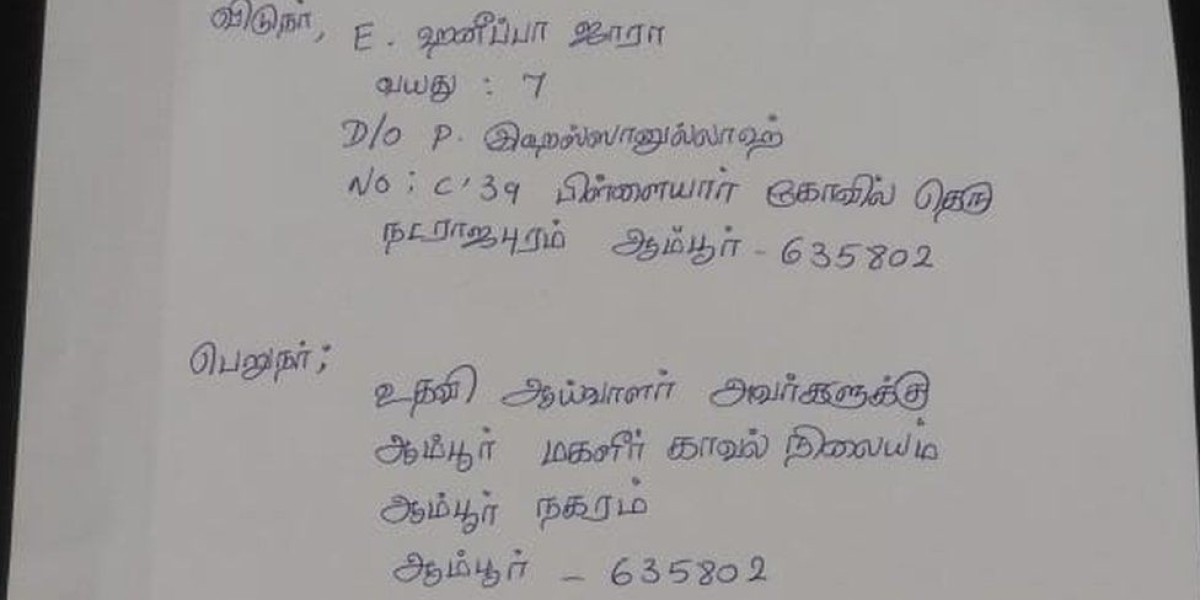 விடுநர், E. ஹனீப்பா ஜாரா
வயது : 7
D/O P. இஹஸ்ஸானுல்லாஹ்
NO : C'39 பிள்ளையார் கோவில் தெரு
நடராஜபுரம் ஆம்பூர் - 635802
பெறுநர்;
உதவி ஆய்வாளர் அவர்களுக்கு
ஆம்பூர் மகளிர் காவல் நிலையம்
ஆம்பூர் நகரம்
ஆம்பூர் - 635802